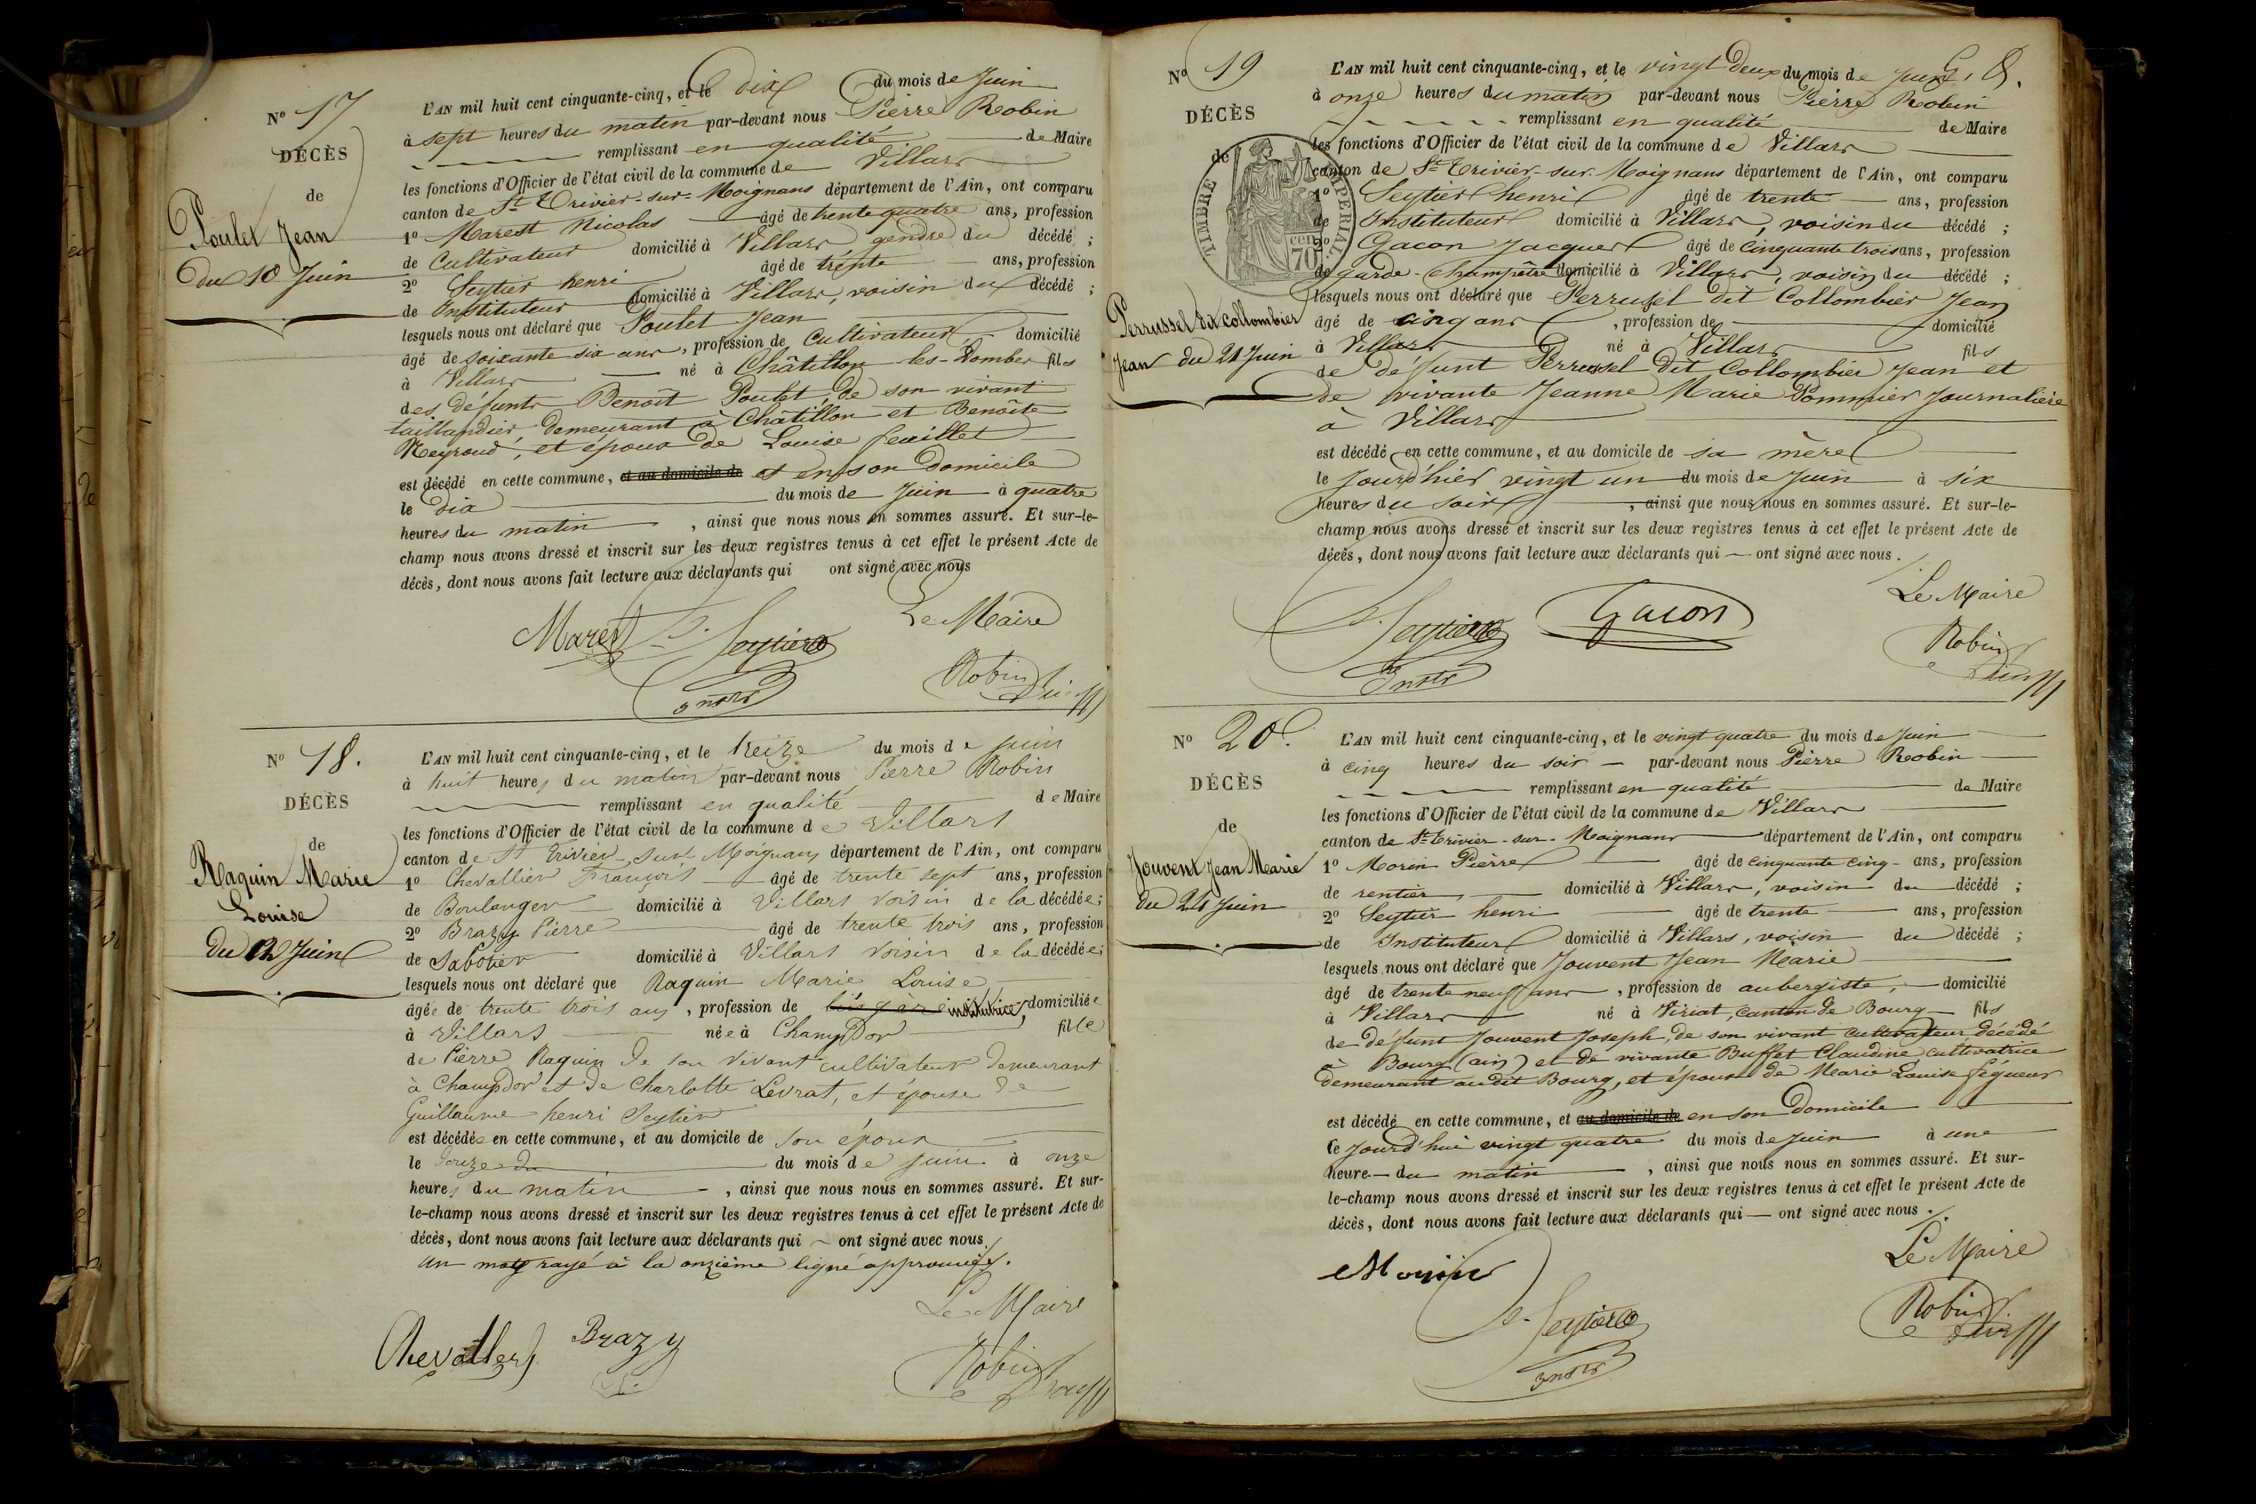 Nº 17
DÉCÈS
de
Poulet Jean
du 10 Juin
L'AN mil huit cent cinquante-cinq, et le dix du mois de Juin
à sept heures du matin par-devant nous Pierre Robin
remplissant en qualité de Maire
les fonctions d'Officier de l'état civil de la commune de Villars
canton de St Trivier-sur-Moignans département de l'Ain, ont comparu
1º Marest Nicolas âgé de trente quatre ans, profession
de Cultivateur domicilié à Villars gendre du décédé ;
2º Seytier henri âgé de trente ans, profession
de Instituteur domicilié à Villars, voisin du décédé ;
lesquels nous ont déclaré que Poulet Jean
âgé de soixante six ans, profession de Cultivateur domicilié
à Villars né à Châtillon-les-Dombes fils
des défunts Benoît Poulet, de son vivant
taillandier, demeurant à Châtillon et Benoîte
Neyroud, et époux de Louise feuillet
est décédé en cette commune, et au domicile de et en son Domicile
le dix du mois de Juin à quatre
heures du matin, ainsi que nous nous en sommes assuré. Et sur-le-
champ nous avons dressé et inscrit sur les deux registres tenus à cet effet le présent Acte de
décès, dont nous avons fait lecture aux déclarants qui ont signé avec nous
Le Maire
Marest S. Seytier
Instr
Robin
Nº 18.
DÉCÈS
de
Raquin Marie
Louise
Du 12 Juin
L'AN mil huit cent cinquante-cinq, et le treize du mois de juin
à huit heures du matin par-devant nous Pierre Robin
remplissant en qualité de Maire
les fonctions d'Officier de l'état civil de la commune de Villars
canton de St Trivier-sur-Moignans département de l'Ain, ont comparu
1º Chevallier François âgé de trente sept ans, profession
de Boulanger domicilié à Villars voisin de la décédée;
2º Brazy Pierre âgé de trente trois ans, profession
de Sabotier domicilié à Villars voisin de la décédée;
lesquels nous ont déclaré que Raquin Marie Louise
âgée de trente trois ans, profession de institutrice, domiciliée
à Villars née à Champdor fille
de Pierre Raquin de son vivant cultivateur demeurant
à Champdor et de Charlotte Levrat, et épouse de
Guillaume henri Seytier
est décédée en cette commune, et au domicile de son époux
le douze du du mois de juin à onze
heures du matin, ainsi que nous nous en sommes assuré. Et sur-
le-champ nous avons dressé et inscrit sur les deux registres tenus à cet effet le présent Acte de
décès, dont nous avons fait lecture aux déclarants qui ont signé avec nous.
un mot rayé à la onzième ligne approuvé.
Le Maire
Chevallier Brazy
Robin
Nº 19
DÉCÈS
de
TIMBRE IMPERIAL
70 cen
Perrussel dit collombier
Jean du 21 Juin
L'AN mil huit cent cinquante-cinq, et le vingt Deux du mois de Juin
à onze heures du matin par-devant nous Pierre Robin
remplissant en qualité de Maire
les fonctions d'Officier de l'état civil de la commune de Villars
canton de St Trivier-sur-Moignans département de l'Ain, ont comparu
1º Seytier henri âgé de trente ans, profession
de Instituteur domicilié à Villars, voisin du décédé ;
2º Gacon Jacques âgé de cinquante trois ans, profession
de garde-champêtre domicilié à Villars, voisin du décédé ;
lesquels nous ont déclaré que Perrussel dit Collombier Jean
âgé de cinq ans, profession de domicilié
à Villars né à Villars fils
de défunt Perrussel dit Collombier Jean et
de vivante Jeanne Marie Pommier Journalière
à Villars
est décédé en cette commune, et au domicile de sa mère
le Jourd'hier vingt un du mois de Juin à six
heures du soir, ainsi que nous nous en sommes assuré. Et sur-le-
champ nous avons dressé et inscrit sur les deux registres tenus à cet effet le présent Acte de
décès, dont nous avons fait lecture aux déclarants qui — ont signé avec nous.
Le Maire
S. Seytier Gacon
Instr
Robin
Nº 20.
DÉCÈS
de
Jouvent Jean Marie
du 24 Juin
L'AN mil huit cent cinquante-cinq, et le vingt quatre du mois de Juin
à cinq heures du soir — par-devant nous Pierre Robin
remplissant en qualité de Maire
les fonctions d'Officier de l'état civil de la commune de Villars
canton de St Trivier-sur-Moignans département de l'Ain, ont comparu
1º Morin Pierre âgé de cinquante cinq ans, profession
de rentier domicilié à Villars, voisin du décédé ;
2º Seytier henri âgé de trente ans, profession
de Instituteur domicilié à Villars, voisin du décédé ;
lesquels nous ont déclaré que Jouvent Jean Marie
âgé de trente neuf ans, profession de aubergiste, domicilié
à Villars né à Viriat, canton de Bourg fils
de défunt Jouvent Joseph, de son vivant cultivateur décédé
à Bourg (ain) et de vivante Buffet Claudine cultivatrice
demeurant audit Bourg, et époux de Marie Louise
est décédé en cette commune, et au domicile de en son Domicile
le Jourd'hui vingt quatre du mois de Juin à une
heure — du matin, ainsi que nous nous en sommes assuré. Et sur-
le-champ nous avons dressé et inscrit sur les deux registres tenus à cet effet le présent Acte de
décès, dont nous avons fait lecture aux déclarants qui — ont signé avec nous.
Le Maire
Morin
S. Seytier
Instr
Robin